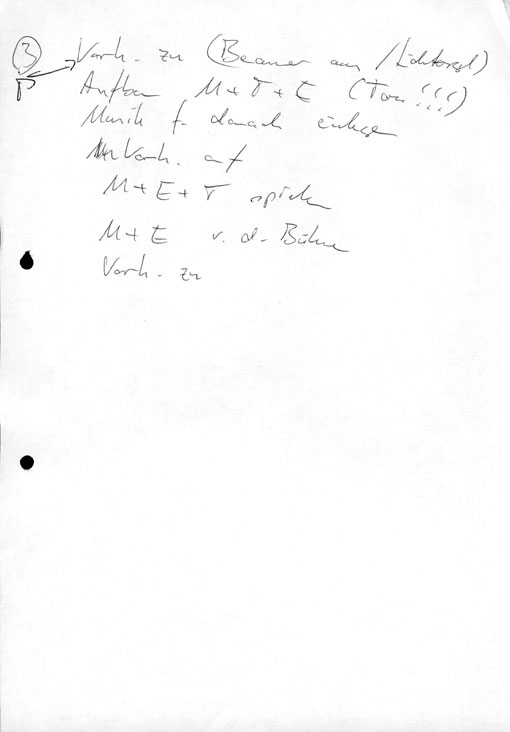 ③ Vorh. zu (Beamer aus / Lichtorgel)
P Aufbau M + T + E (Ton!!!)
Musik f. danach einlegen
Vorh. auf
M + E + T spielen
M + E v. d. Bühne
Vorh. zu